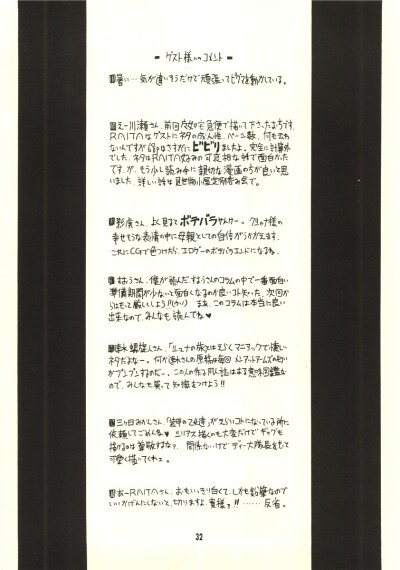 = ゲスト様へのコメント =
暑い…気が違いそうだけで頑張ってピグマを動かしている。
えー川瀬さん、前回魔女の宅急便で描いて下さった方です。
RAITAはゲストにネタの成人性、ページ数、何も云わ
ないんですが68pはさすがにビビりましたよ。完全に計算外
でした。ネタはRAITA好みの可哀相な話で面白かった
ですが、もう少し読み手に親切な漫画の方が良いと思
いました。詳しい話は見世物小屋定例呑み会で。
影虎さん、よく見るとボテバラやんけー 様の
幸せそうな表情の中に母親としての自信がうかがえます。
これにCGで色つけたら、エロゲーのボテバラエンドになるね。
すおうさん、僕が読んだすおうさんのコラムの中で一番面白い
準備期間が少ないと面白くなるのか良いコト知った、次回か
らはもって厳しいしよう!!(ケリ) まぁ、このコラムは本当に良い
出来なので、みんなも読んでね♥
速水螺旋人さん、「リュナの旅」はえらくマニアックで懐しい
ネタだよなー。何か速水さんの原稿は毎回メンアットアームズの匂い
がプンプンするのだー。この人の作る同人誌はある意味図鑑な
ので、みんなも買って知識をつけよう!!
三ヶ月みかんさん、「装甲の乙女達」がえらいコトになっている所に
依頼してごめんネ♥ シリアス描くのも大変だけでギャグも
描けるのは尊敬するな? 関係ないけどディー大隊長をもって
可愛く描いてくれェ。
おーRAITAさん、おもいっきり白くて、しかも鉛筆なので
いいかげんにしないと、切りますよ、貴様ッ!! ……反省。
32